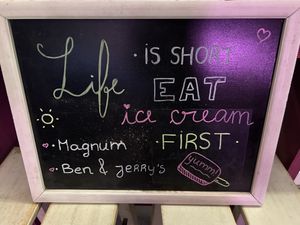 Life · IS SHORT
EAT
ice cream
· FIRST ·
· Magnum
· Ben & JERRY'S
yumm!